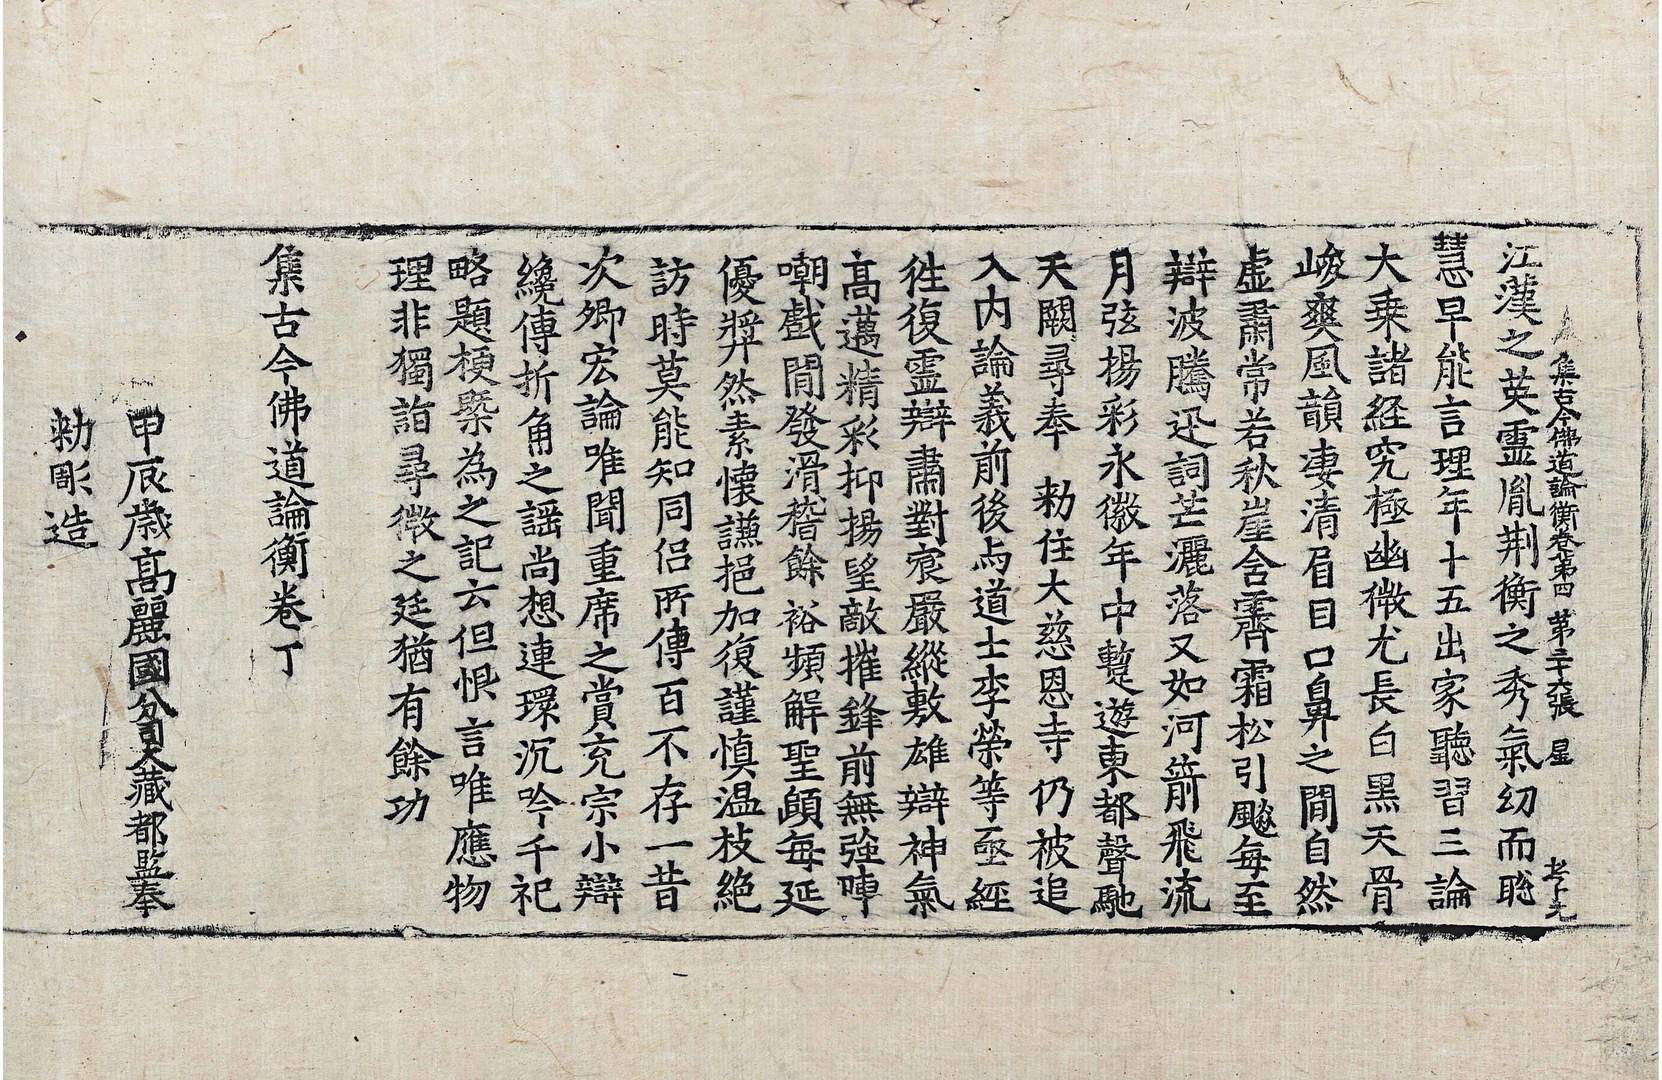 集古今佛道論衡卷第四 第二十張 星
江漢之英靈胤荆衡之秀氣幼而聡
慧早能言理年十五出家聽習三論
大乗諸経究極幽微尤長白黒天骨
峻爽風韻凄清眉目口鼻之閒自然
虛肅常若秋崖含霽霜松引飈每至
辯波騰迅詞芒灑落又如河箭飛流
月弦揚彩永徽年中蹔遊東都聲馳
天闕尋奉 勑住大慈恩寺仍被追
入内論義前後与道士李榮等亟經
徃復靈辯肅對宸嚴縱敷雄辯神氣
高邁精彩抑揚望敵摧鋒前無強陣
嘲戲閒發滑稽餘裕頻解聖頤每延
優奬然素懷謙挹加復謹慎温枝絶
訪時莫能知同侣所傳百不存一昔
次卿宏論唯聞重席之賞充宗小辯
纔傳折角之謡尚想連環沉吟千祀
略題梗槩為之記云但恨言唯應物
理非獨詣尋微之廷猶有餘功
集古今佛道論衡卷丁
甲辰歲高麗國分司大藏都監奉
勑彫造